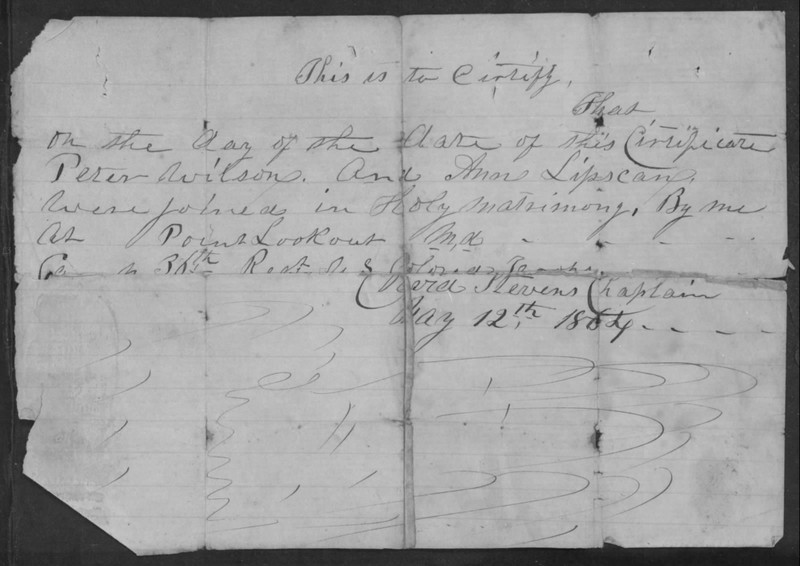 This is to Certify,
That
on the day of the date of this Certificate
Peter Wilson. And Ann Lipscan,
Were joined in Holy Matrimony, By me
At Point Lookout Md - - - -
36th Regt Colored
David Stevens Chaplain
May 12th 1864 - - - -